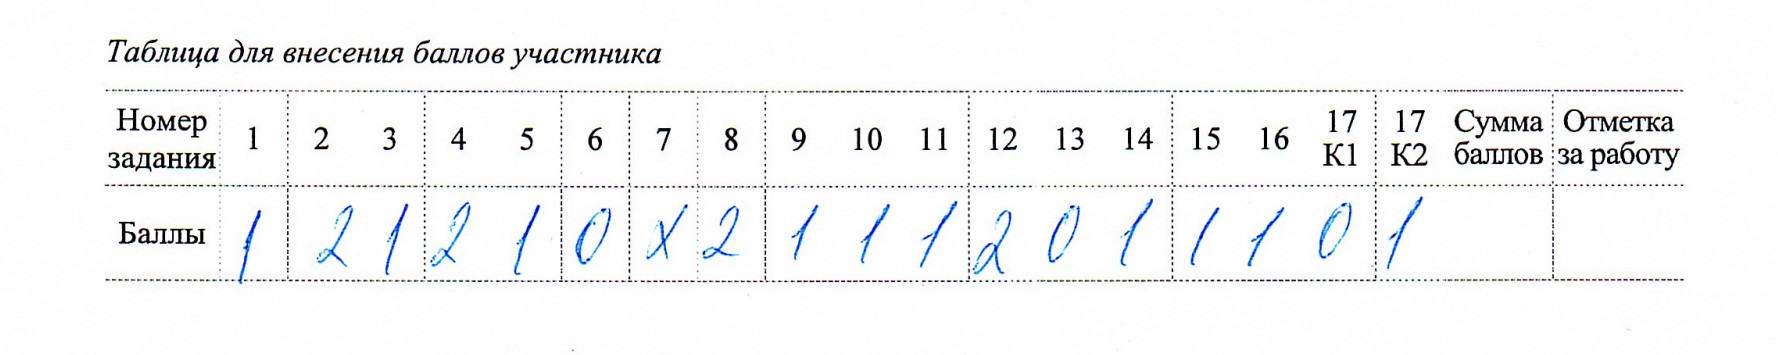 Таблица для внесения баллов участника
Номер задания 1 2 3 4 5 6 7 8 9 10 11 12 13 14 15 16 17 К1 17 К2 Сумма баллов Отметка за работу
Баллы 1 2 1 2 1 0 X 2 1 1 1 2 0 1 1 1 0 1